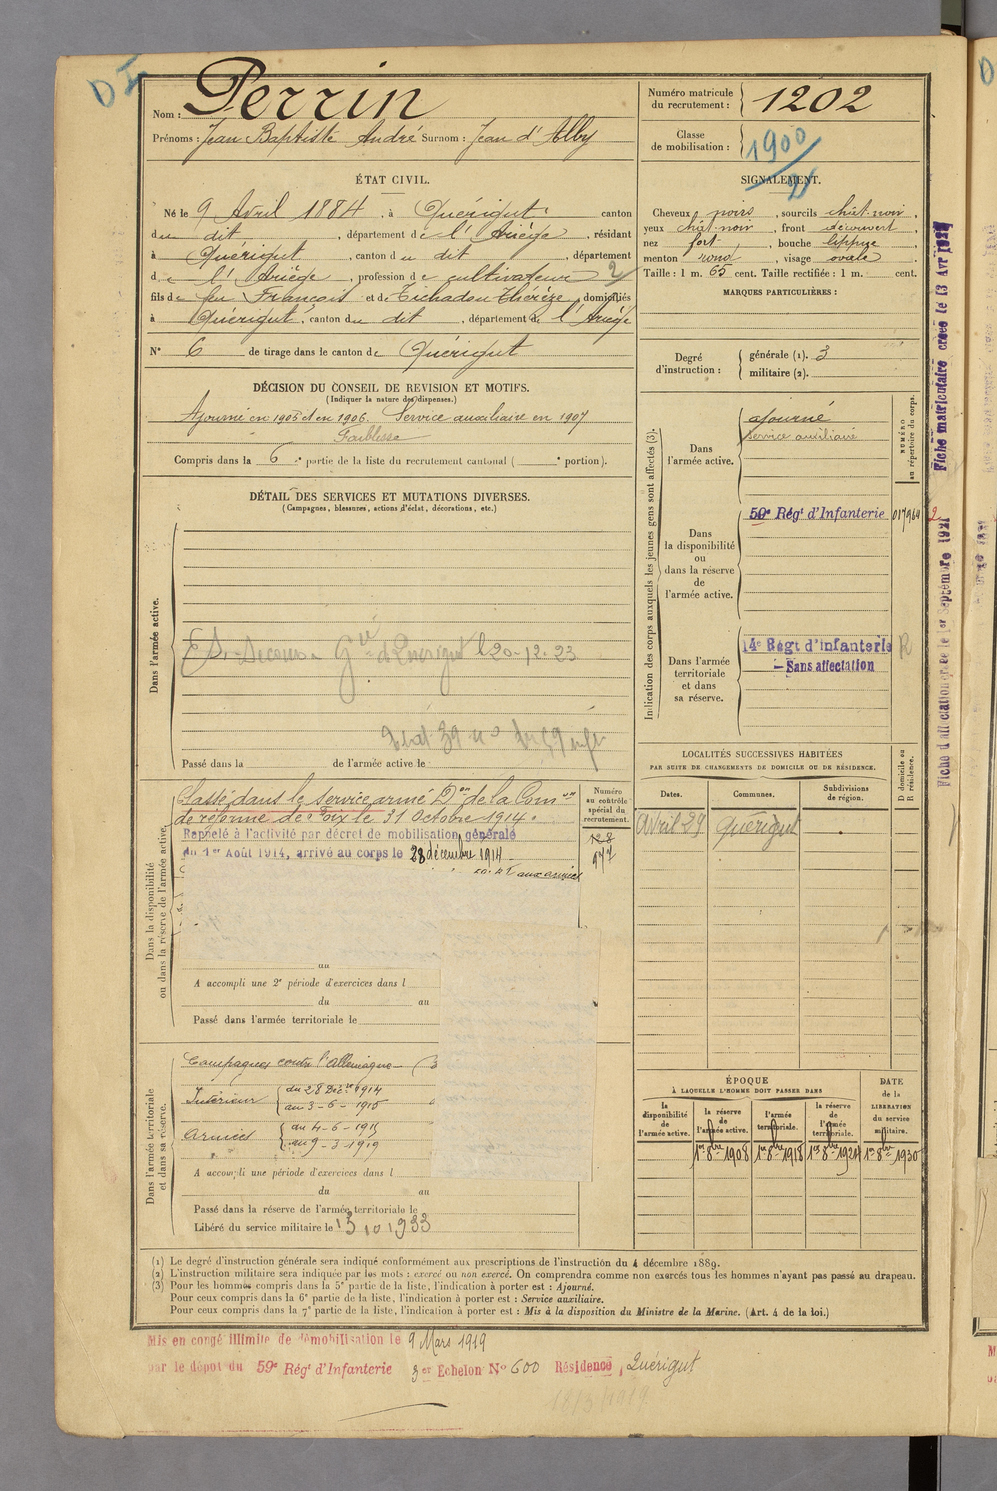 DI
Nom : Perrin
Prénoms : Jean Baptiste André Surnom : Jean d'Alby
ÉTAT CIVIL.
Né le 9 Avril 1884, à Quérigut, canton
du dit, département de l'Ariège, résidant
à Quérigut, canton du dit, département
de l'Ariège, profession de cultivateur 2
fils de feu François et de Tichadou Thérèze, domiciliés
à Quérigut, canton du dit, département de l'Ariège
N° 6 de tirage dans le canton de Quérigut
DÉCISION DU CONSEIL DE REVISION ET MOTIFS.
(Indiquer la nature des dispenses.)
Ajourné en 1905 et en 1906. Service auxiliaire en 1907
Faiblesse
Compris dans la 6e partie de la liste du recrutement cantonal ( e portion).
DÉTAIL DES SERVICES ET MUTATIONS DIVERSES.
(Campagnes, blessures, actions d'éclat, décorations, etc.)
Dans l'armée active.
Quérigut l 20-12-23
Passé dans la de l'armée active le
Dans la disponibilité
ou dans la réserve de l'armée active.
Classé dans le service armé Don de la Comon
de réforme de Foix le 31 Octobre 1914.
Rappelé à l'activité par décret de mobilisation générale
du 1er Août 1914, arrivé au corps le 28 décembre 1914
aux armées
au
A accompli une 2e période d'exercices dans l
du au
Passé dans l'armée territoriale le
Numéro
au contrôle
spécial du
recrutement.
128
947
Dans l'armée territoriale
et dans sa réserve.
Campagnes contre l'Allemagne
Intérieur { du 28 Déce 1914
au 3-6-1915
Armées { du 4-6-1915
au 9-3-1919
A accompli une période d'exercices dans l
du au
Passé dans la réserve de l'armée territoriale le
Libéré du service militaire le 15 10 1933
Numéro matricule
du recrutement : 1202
Classe
de mobilisation : 1900
21
SIGNALEMENT.
Cheveux noirs, sourcils chat-noir,
yeux chat-noir, front découvert,
nez fort, bouche lippue,
menton rond, visage ovale,
Taille : 1 m. 65 cent. Taille rectifiée : 1 m. cent.
MARQUES PARTICULIÈRES :
Degré
d'instruction : { générale (1). 3
militaire (2).
Indication des corps auxquels les jeunes gens sont affectés (3).
NUMÉRO
au répertoire du corps.
Dans
l'armée active.
ajourné
Service auxiliaire
Dans
la disponibilité
ou
dans la réserve
de
l'armée active.
59e Régt d'Infanterie 017964
Dans l'armée
territoriale
et dans
sa réserve.
14e Régt d'infanterie R
Sans affectation
LOCALITÉS SUCCESSIVES HABITÉES
PAR SUITE DE CHANGEMENTS DE DOMICILE OU DE RÉSIDENCE.
Dates. Communes. Subdivisions
de région. D domicile ou
R résidence.
Avril 29 Quérigut
ÉPOQUE
À LAQUELLE L'HOMME DOIT PASSER DANS
DATE
de la
LIBÉRATION
du service
militaire.
la
disponibilité
de
l'armée active.
la réserve
de
l'armée active.
l'armée
territoriale.
la réserve
de
l'armée
territoriale.
1er 8bre 1908 1er 8bre 1918 1er 8bre 1924 1er 8bre 1930
Fiche matriculaire créée le 13 Avr 192
Fiche d'affectation créée le 1er Septembre 1921
2
(1) Le degré d'instruction générale sera indiqué conformément aux prescriptions de l'instruction du 4 décembre 1889.
(2) L'instruction militaire sera indiquée par les mots : exercé ou non exercé. On comprendra comme non exercés tous les hommes n'ayant pas passé au drapeau.
(3) Pour les hommes compris dans la 5e partie de la liste, l'indication à porter est : Ajourné.
Pour ceux compris dans la 6e partie de la liste, l'indication à porter est : Service auxiliaire.
Pour ceux compris dans la 7e partie de la liste, l'indication à porter est : Mis à la disposition du Ministre de la Marine. (Art. 4 de la loi.)
Mis en congé illimité de démobilisation le 9 Mars 1919
par le dépôt du 59e Régt d'Infanterie 3er Echelon No 600 Résidence, Quérigut
18/3/1919